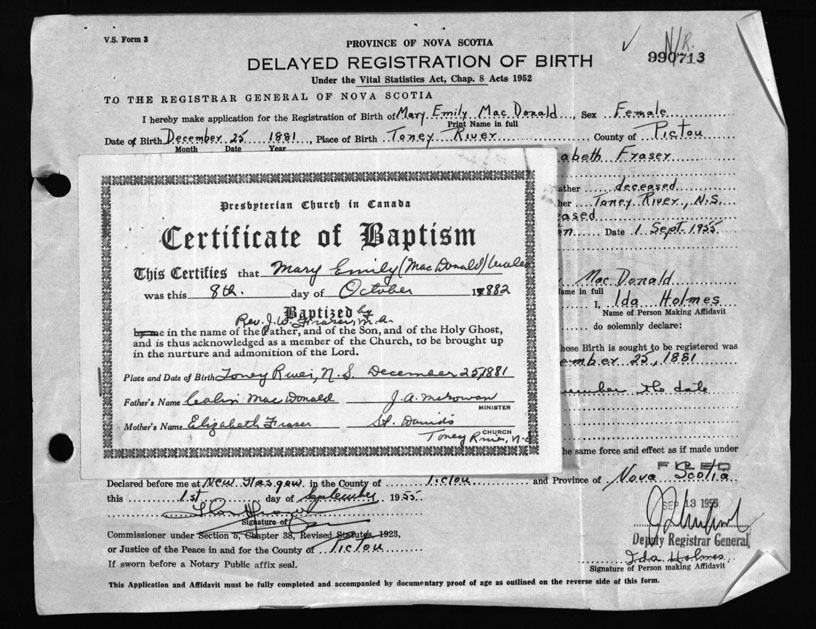 V.S. Form 3
PROVINCE OF NOVA SCOTIA
N/R.
990713
DELAYED REGISTRATION OF BIRTH
Under the Vital Statistics Act, Chap. 8 Acts 1952
TO THE REGISTRAR GENERAL OF NOVA SCOTIA
I hereby make application for the Registration of Birth of Mary Emily MacDonald, Sex Female
Print Name in full
Date of Birth December 25 1881, Place of Birth Toney River County of Pictou
Month Date Year
abeth Fraser
ather deceased
her Toney River, N.S.
ased
on Date 1 Sept. 1955
MacDonald
ame in full
I, Ida Holmes
Name of Person Making Affidavit
do solemnly declare:
hose Birth is sought to be registered was
ember 25, 1881
the date
he same force and effect as if made under
Presbyterian Church in Canada
Certificate of Baptism
This Certifies that Mary Emily (MacDonald)
was this 8th. day of October 1882
Baptized by
Rev. J. W. Fraser, M.A.
by me in the name of the Father, and of the Son, and of the Holy Ghost,
and is thus acknowledged as a member of the Church, to be brought up
in the nurture and admonition of the Lord.
Place and Date of Birth Toney River, N.S. December 25/1881
Father's Name Colin MacDonald J.A. McGowan
MINISTER
Mother's Name Elizabeth Fraser St. David's
CHURCH
Toney River, N.S.
Declared before me at New Glasgow in the County of Pictou and Province of Nova Scotia
FILED
this 1st day of September 1955
SEP 13 1955
Signature of
Deputy Registrar General
Commissioner under Section 5, Chapter 38, Revised Statutes, 1923,
or Justice of the Peace in and for the County of Pictou
Ida Holmes
Signature of Person making Affidavit
If sworn before a Notary Public affix seal.
This Application and Affidavit must be fully completed and accompanied by documentary proof of age as outlined on the reverse side of this form.